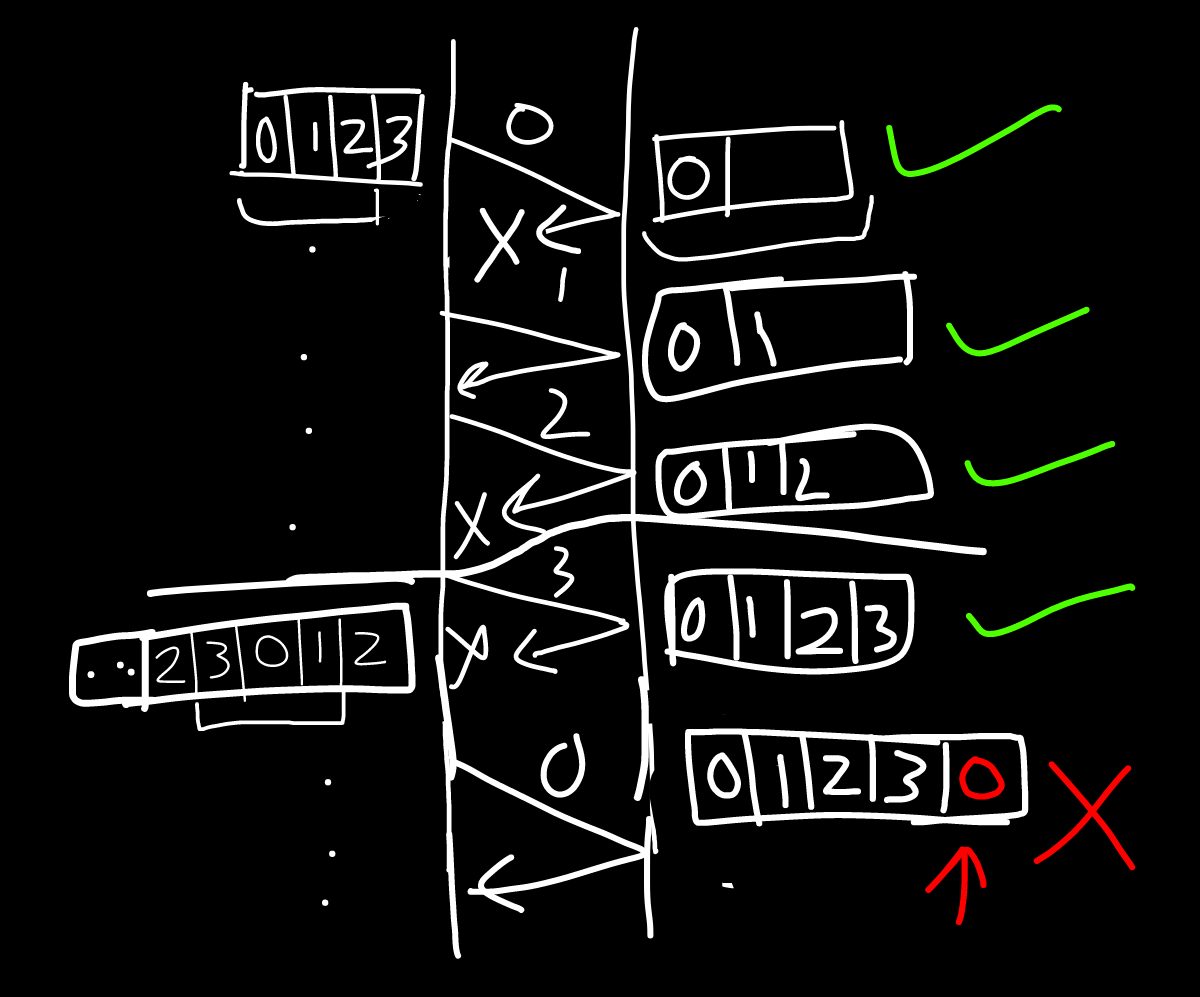 0 1 2 3
0
0
X
1
0 1
2
0 1 2
X
3
0 1 2 3
X
. . . 2 3 0 1 2
0
0 1 2 3 0
X